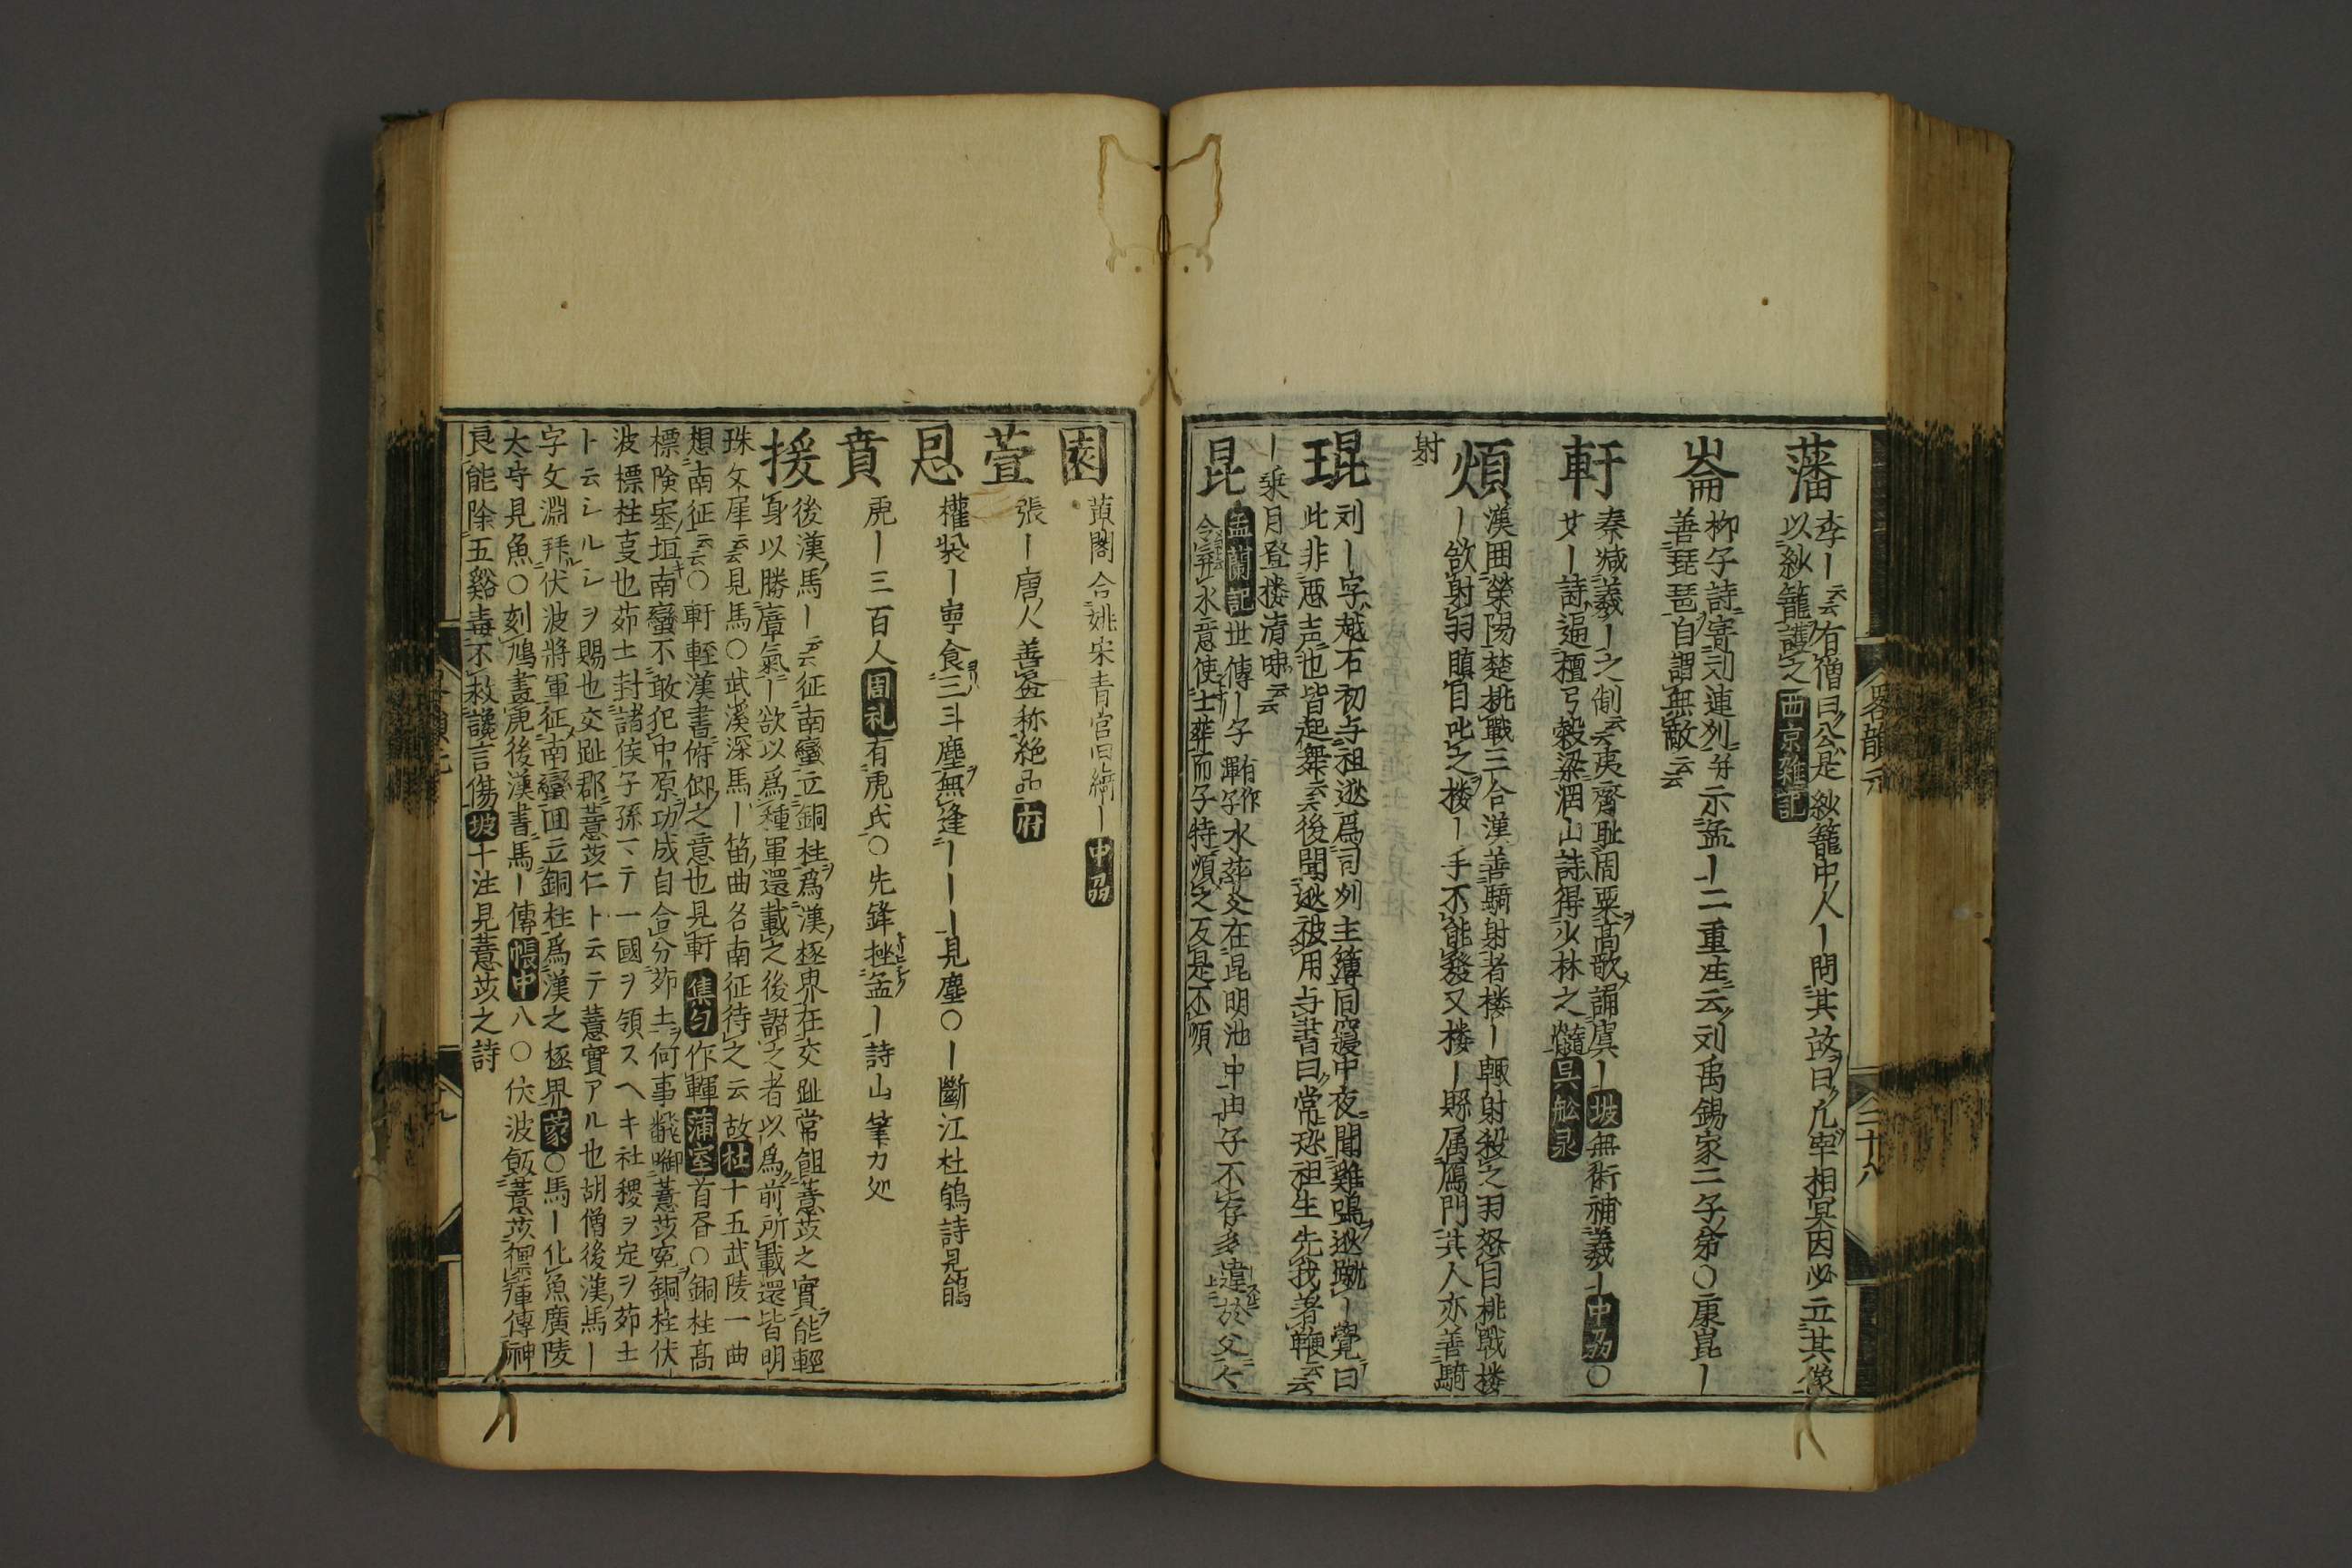 藩
李ー云云有僧曰公是紗籠中人ー問其故曰凡宰相冥因必立其像
以紗籠護之西京雑記
崙
柳子詩寄刘連州并示孟ー二重生云刘禹錫家二子弟○康崑ー
善琵琶自謂無敵云云
軒
秦减義ー之制云云夷齊耻周粟高歌誦虞ー坡無術補義ー中刕○
廿ー詩逼檀弓穀梁洞山詩得少林之髓
煩
漢囲榮陽楚挑戰三合漢善騎射者楼ー輙射殺之羽怒自桃戦楼
ー欲射羽瞋目叱之楼ー手不能發又楼ー縣属鴈門其人亦善騎
射
琨
刘ー字越石初与祖逖爲司州主簿同寝中夜聞雞鳴逖蹴ー覺曰
此非悪声也皆起舞云云後聞逖被用与書曰常恐祖生先我著鞭云云
ー乗月登楼清嘯云云
昆
孟蘭記世傳ー子水葬父在昆明池中由子不存多違於父父
令葬水意使土葬而子特順之反是不順
園
萸閣合姚宋青宮旧綺ー中刕
萱
張ー唐人善畫称絶品府
恩
權袋ー寧食三斗塵無逢ーーー見塵○ー斷江杜鵑詩見鵑
賁
虎ー三百人周礼有虎氏○先鋒挫孟ー詩山筆力処
援
後漢馬ー云云征南蠻立銅柱爲漢極界在交趾常餌薏苡之實能輕
身以勝瘴氣ー欲以爲種軍還載之後譖之者以爲前所載還皆明
珠文犀云云見馬○武溪深馬ー笛曲名南征待之云故杜十五武陵一曲
想南征云云○軒輊漢書俯仰之意也見軒集勻作輝蒲室首呑○銅柱高
標険塞垣南蠻不敢犯中原功成自合分茆土何事翻啣薏苡寃銅柱伏
波標柱支也茆土封諸侯子孫マテ一國ヲ領スヘキ社稷ヲ定ヲ茆土
ト云シルシヲ賜也交趾郡薏苡仁ト云テ薏實アル也胡僧後漢馬ー
字文淵拜伏波將軍征南蠻囬立銅柱爲漢之極界蒙○馬ー化魚廣陵
太守見魚○刻鳰畫虎後漢書馬ー傳帳中八○伏波飯薏苡禦瘴傳神
良能除五谿毒不救讒言傷坡十注見薏苡之詩
畧韻云
三十八